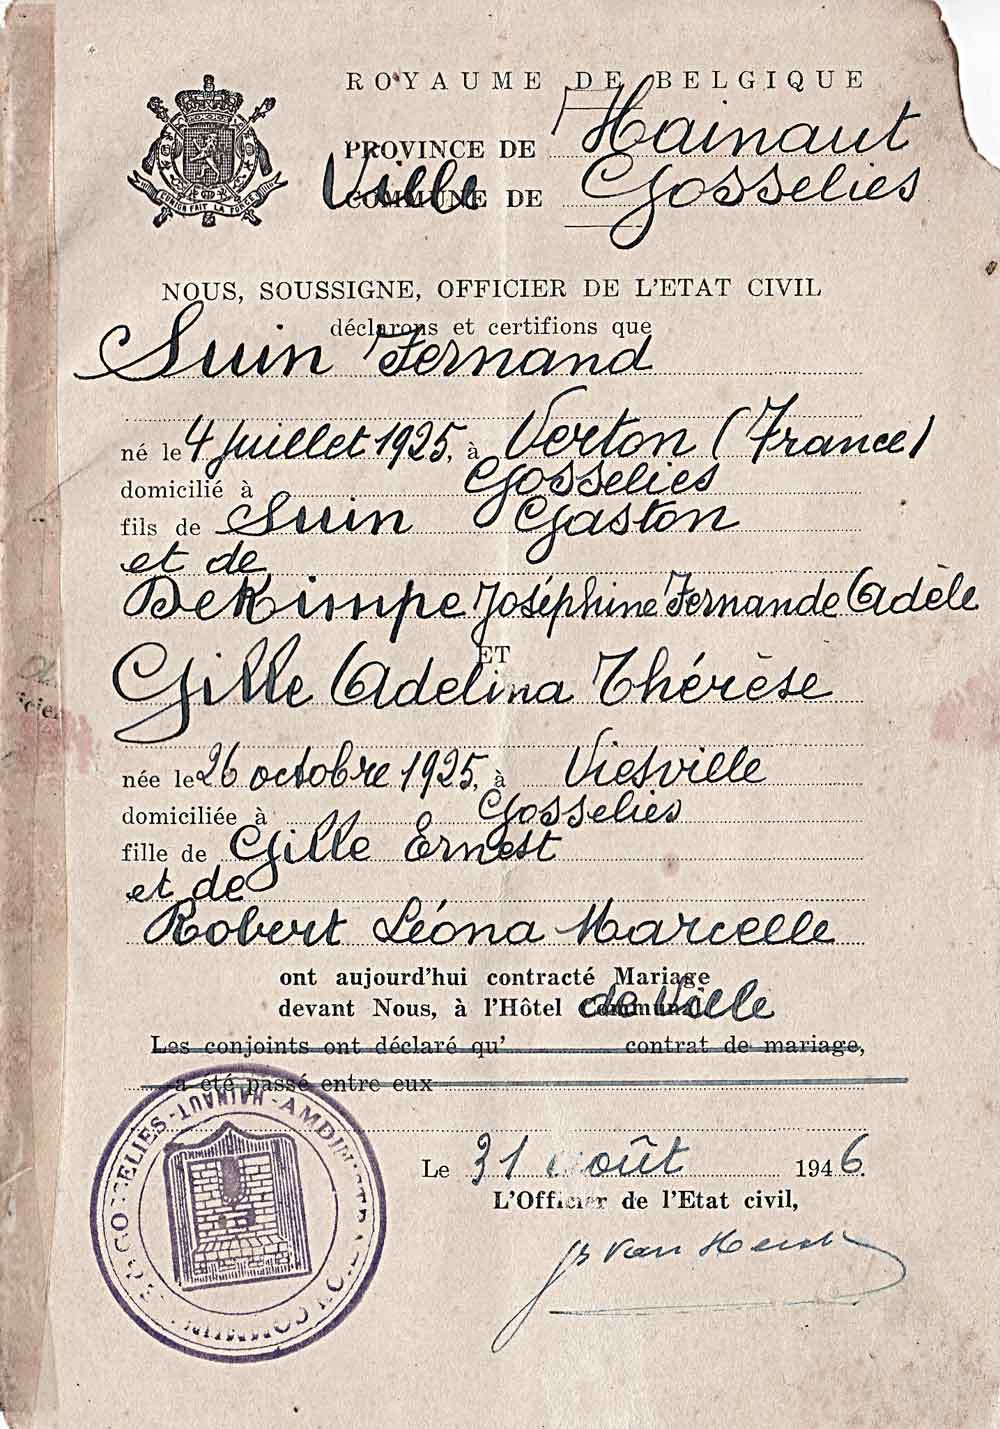 ROYAUME DE BELGIQUE
L'UNION FAIT LA FORCE
PROVINCE DE Hainaut
Ville COMMUNE DE Gosselies
NOUS, SOUSSIGNE, OFFICIER DE L'ETAT CIVIL
déclarons et certifions que
Suin Fernand
né le 4 Juillet 1925, à Verton (France)
domicilié à Gosselies
fils de Suin Gaston
et de
DeKimpe Joséphine Fernande Adèle
ET
Gille Adelina Thérèse
née le 26 octobre 1925, à Viesville
domiciliée à Gosselies
fille de Gille Ernest
et de
Robert Léona Marcelle
ont aujourd'hui contracté Mariage
devant Nous, à l'Hôtel Communal de Ville
Les conjoints ont déclaré qu' contrat de mariage,
a été passé entre eux
HAINAUT
Le 31 août 1946.
L'Officier de l'Etat civil,